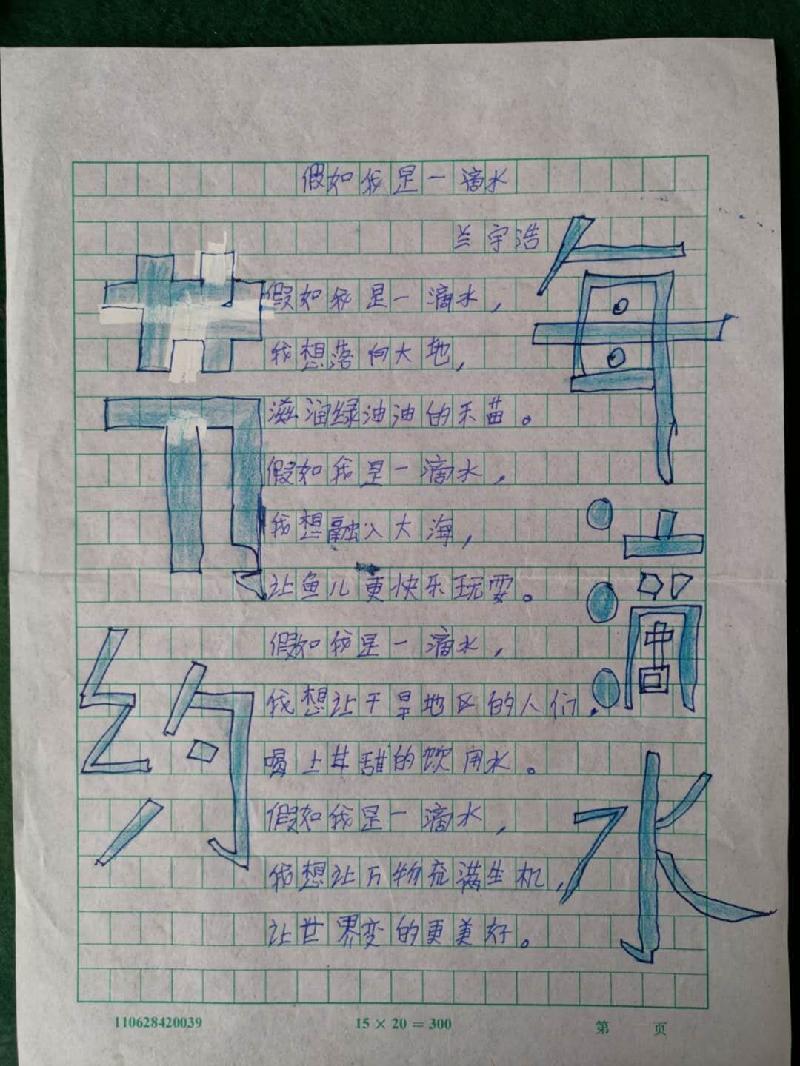 假如我是一滴水
兰宇浩
假如我是一滴水，
我想落向大地，
滋润绿油油的禾苗。
假如我是一滴水，
我想融入大海，
让鱼儿更快乐玩耍。
假如我是一滴水，
我想让干旱地区的人们，
喝上甘甜的饮用水。
假如我是一滴水，
我想让万物充满生机，
让世界变的更美好。
节
约
每
滴
水
110628420039
15 × 20 = 300
第 页